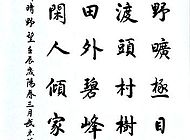 野曠極目
渡頭村樹
田外碧峰
閑人傾家
晴野望壬辰歲陽春三月